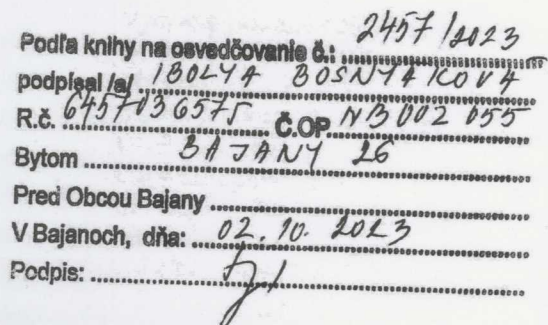 Podľa knihy na osvedčovanie č.: 2457/2023
podpísal /a/ IBOLYA BOSNYAKOVA
R.č. 6457036575 Č.OP NB 002 055
Bytom BAJANY 26
Pred Obcou Bajany
V Bajanoch, dňa: 02. 10. 2023
Podpis: